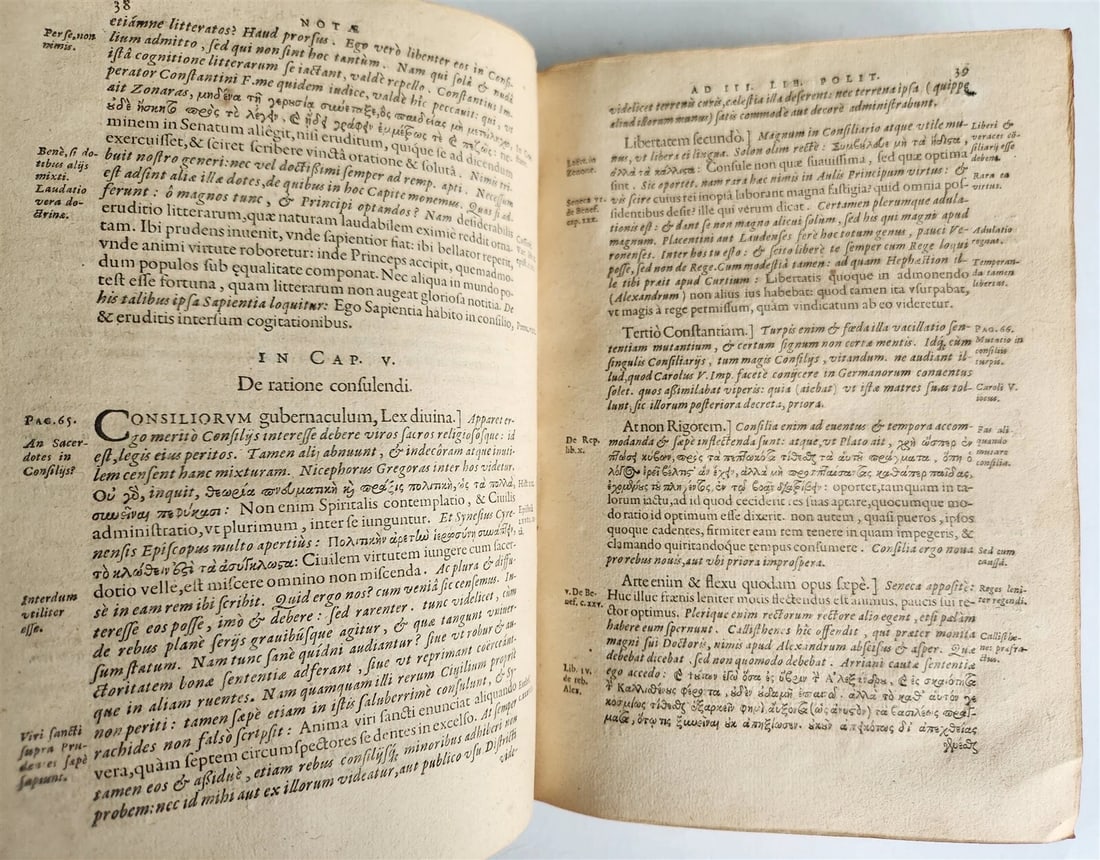 38
NOTÆ
Per se, non
nimis.
etiámne litteratos? Haud prorsus. Ego verò libenter eos in Consi-
lium admitto, sed qui non sint hoc tantùm. Nam qui solâ & nudâ
istâ cognitione litterarum se iactant, valdè repello. Constantinus Im-
perator Constantini F. me quidem iudice, valdè hic peccauit: qui, vt
ait Zonaras,
minem in Senatum allegit, nisi eruditum, quíque se ad dicendum
exercuisset, & sciret scribere vinctâ oratione & solutâ. Nimis tri-
buit nostro generi: nec vel doctissimi semper ad remp. apti. Necessum
est adsint aliæ illæ dotes, de quibus in hoc Capite monemus. Quas si ad-
ferunt: ô magnos tunc, & Principi optandos? Nam desiderabilis
eruditio litterarum, quæ naturam laudabilem eximie reddit orna-
tam. Ibi prudens inuenit, vnde sapientior fiat: ibi bellator reperit,
vnde animi virtute roboretur: inde Princeps accipit, quemadmo-
dum populos sub ęqualitate componat. Nec aliqua in mundo po-
test esse fortuna, quam litterarum non augeat gloriosa notitia. De
his talibus ipsa Sapientia loquitur: Ego Sapientia habito in consilio,
& eruditis intersum cogitationibus.
Benè, si do-
tibus alijs
mixti.
Laudatio
vera do-
ctrinæ.
IN CAP. V.
De ratione consulendi.
PAG. 65.
An Sacer-
dotes in
Consilijs?
CONSILIORVM gubernaculum, Lex diuina.] Apparet er-
go meritò Consilijs interesse debere viros sacros religiososque: id
est, legis eius peritos. Tamen alij abnuunt, & indecóram atque inuti-
lem censent hanc mixturam. Nicephorus Gregoras inter hos videtur.
Οὐ γὸ, inquit, θεωρία πνευματικὴ κỳ πρᾶξις πολιτικὴ, ὡς τὰ πολλὰ,
συνιέναι πεφύκασι: Non enim Spiritalis contemplatio, & Ciuilis
administratio, vt plurimum, inter se iunguntur. Et Synesius Cyre-
nensis Episcopus multo apertiùs: Πολιτικὴν ἀρετὴν ἱερωσύνῃ συνάπτειν,
τὸ κλώθειν ἐςὶ τὰ ἀσύγκλωςα: Ciuilem virtutem iungere cum sacer-
dotio velle, est miscere omnino non miscenda. Ac plura & diffu-
sè in eam rem ibi scribit. Quid ergo nos? cum veniâ sic censemus. In-
teresse eos posse, imò & debere: sed rarenter. tunc videlicet, cùm
de rebus planè serijs grauibúsque agitur, & quæ tangunt vniuer-
sum statum. Nam tunc sanè quidni audiantur? siue vt robur & au-
ctoritatem bonæ sententiæ adferant, siue vt reprimant coërceant-
que in aliam ruentes. Nam quamquam illi rerum Ciuilium propriè
non periti: tamen sæpè etiam in istis saluberrimè consulunt, & Sy-
rachides non falsò scripsit: Anima viri sancti enunciat aliquando
vera, quàm septem circumspectores sedentes in excelso. At semper
tamen eos & aßiduè, etiam rebus consilijsq; minoribus adhiberi non
probem: nec id mihi aut ex illorum videatur, aut publico vsu. Distincti
vide-
Interdum
vtiliter
esse.
Viri sancti
supra Pru-
dentes sæpè
sapiunt.
AD III. LIB. POLIT.
39
videlicet terrenis curis, cælestia illa deserent: nec terrena ipsa (quippe
aliud illorum munus) satis commodè aut decorè administrabunt.
Libertatem secundò.] Magnum in Consiliario atque vtile mu-
nus, vt libera ei lingua. Solon olim rectè: Συμβούλευε μὴ τὰ ἥδιστα,
ἀλλὰ τὰ κάλλιστα: Consule non quæ suauissima, sed quæ optima
sint. Sic oportet. nam rara hæc nimis in Aulis Principum virtus: &
vis scire cuius rei inopiâ laborant magna fastigia? quid omnia pos-
sidentibus desit? ille qui verum dicat. Certamen plerumque adula-
tionis est: & dant se non magno alicui solùm, sed his qui magni apud
magnum. Placentini aut Laudenses ferè hoc totum genus, pauci Ve-
ronenses. Inter hos tu esto: & scito liberè te semper cum Rege loqui
posse, sed non de Rege. Cum modestiâ tamen: ad quam Hephæstion il-
le tibi præit apud Curtium: Libertatis quoque in admonendo
(Alexandrum) non alius ius habebat: quod tamen ita vsurpabat,
vt magis à rege permissum, quàm vindicatum ab eo videretur.
Liberi &
veraces cō-
siliarij esse
debent.
Rara ea
virtus.
Adulatio
regnat.
Temperan-
da tamen
libertas.
Laërt. in
Zenone.
Seneca vi.
de Benef.
cap. xxx.
Tertiò Constantiam.] Turpis enim & fœda illa vacillatio sen-
tentiam mutantium, & certum signum non certæ mentis. Idq́; cùm
singulis Consiliarijs, tum magis Consilijs, vitandum. ne audiant il-
lud, quod Carolus V. Imp. facetè conijcere in Germanorum conuentus
solet. quos aßimilabat viperis: quia (aiebat) vt istæ matres suas tol-
lunt, sic illorum posteriora decreta, priora.
PAG. 66.
Mutatio in
consilijs
turpis.
Caroli V.
iocus.
At non Rigorem.] Consilia enim ad euentus & tempora accom-
modanda & sæpè inflectenda sunt: atque, vt Plato ait, χρὴ ὥσπερ ἐν
oportet, tamquam in ta-
lorum iactu, ad id quod ceciderit res suas aptare, quocumque mo-
do ratio id optimum esse dixerit. non autem, quasi pueros, ipsos
quoque cadentes, firmiter eam rem tenere in quam impegeris, &
clamando quiritandoque tempus consumere. Consilia ergo noua
pro rebus nouis, aut vbi priora improspera.
De Rep.
lib. x.
Fas ali-
quando
mutare
consilia.
Sed cum
caussâ.
Arte enim & flexu quodam opus sæpè.] Seneca appositè:
Huc illuc frænis leniter motis flectendus est animus, paucis sui re-
ctor optimus. Plerique enim rectorum rectore alio egent, etsi palàm
habere eum spernunt. Callisthenes hic offendit, qui præter monita
magni sui Doctoris, nimis apud Alexandrum abscisus & asper. Quæ
debebat dicebat, sed non quomodo debebat. Arriani cautæ sententiæ
ego accedo:
v. De Be-
nef. c. xxv.
Lib. iv.
de reb.
Alex.
Reges leni-
ter regendi.
Callisthe-
nes præfra-
ctus.